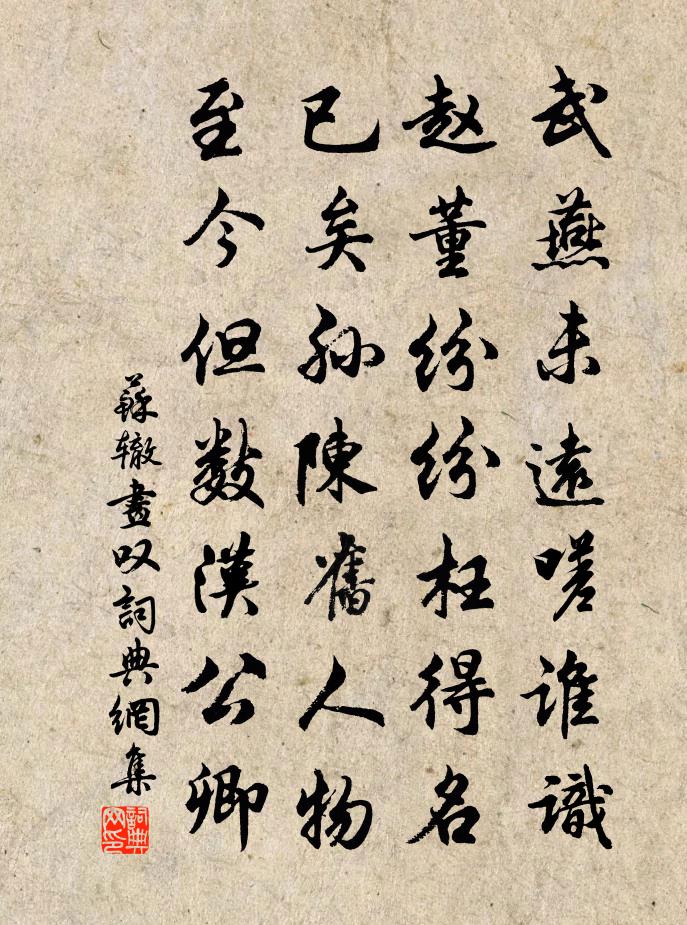 武燕未遠嗟誰識
赵董纷纷枉得名
已矣孙陳舊人物
至今但数漢公卿
蘇辙畫叹詞典網集
詞典网印